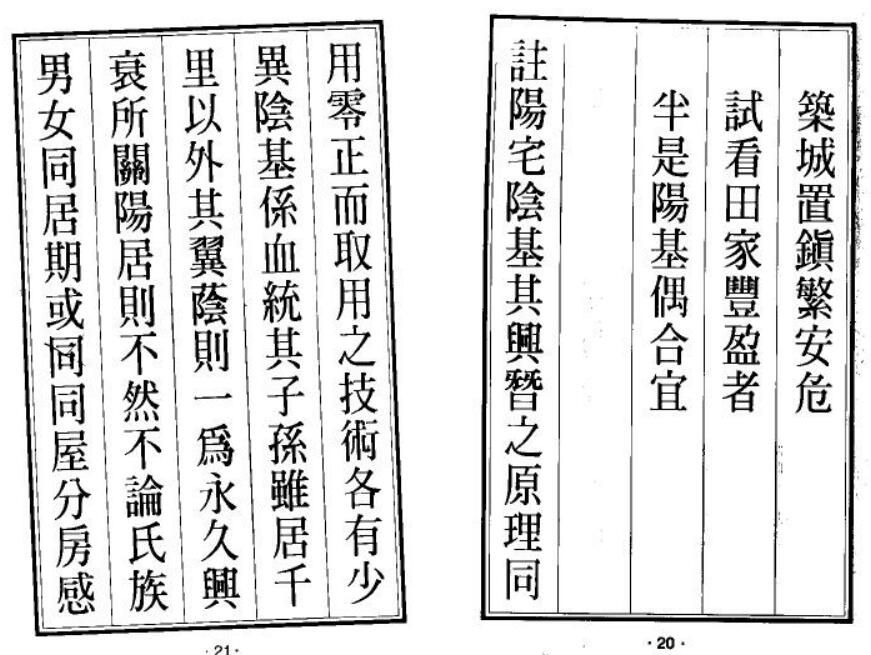 築城置鎭繁安危
試看田家豐盈者
半是陽基偶合宜
註陽宅陰基其興替之原理同
·20·
用零正而取用之技術各有少
異陰基係血統其子孫雖居千
里以外其翼蔭則一爲永久興
衰所關陽居則不然不論氏族
男女同居期或同同屋分房感
·21·